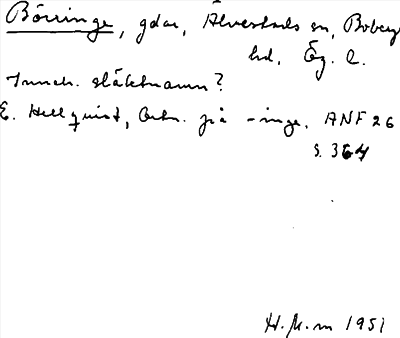 Börringe, gdar, Älvestads sn, Boberg
hd, Ög. l.
Inneh. släktnamn?
E. Hellquist, Ortn. på -inge, ANF 26
s. 364
H. M-m 1951